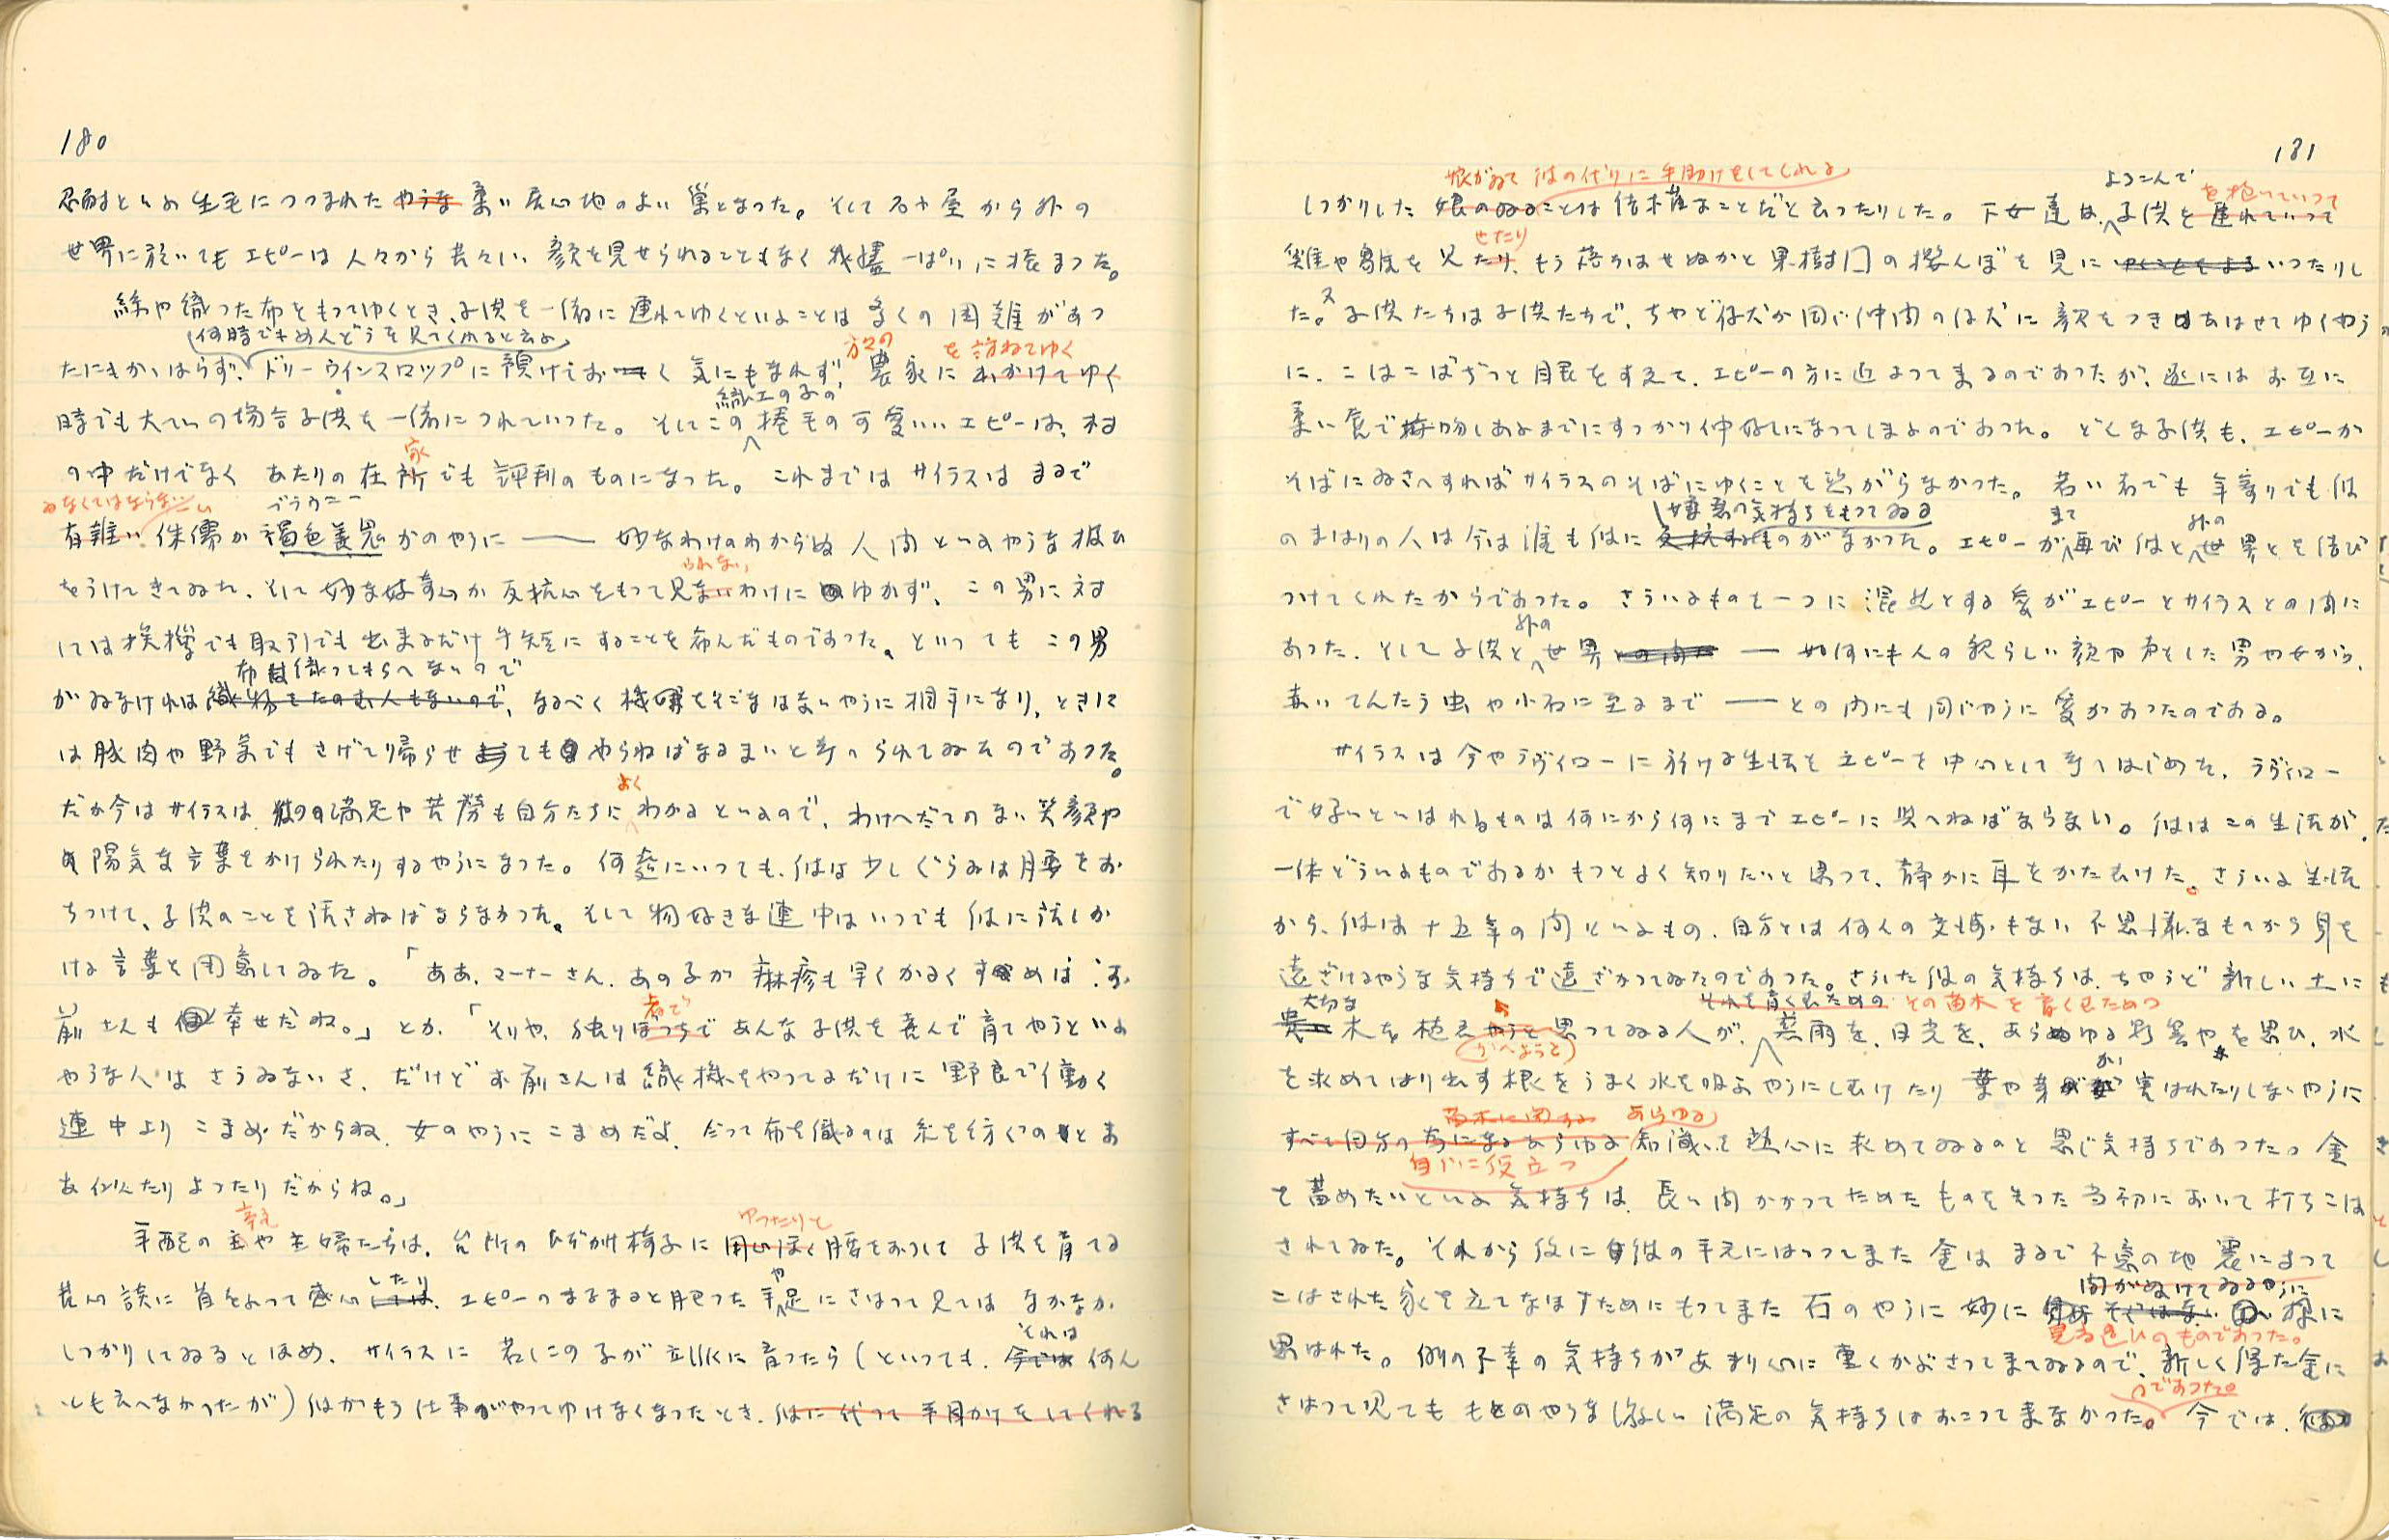 180
忍耐といふ生毛につつまれた やうな 柔い居心地のよい巣となつた。そして石小屋から外の
世界に於いてもエピーは人々から苦々しい顔を見せられることもなく 機嫌一ぱいに振まつた。
絲や織つた布をもつてゆくとき、子供を一緒に連れてゆくといふことは多くの困難があつ
何時でもめんどうを見てくれると云ふ
方々の を訪ねてゆく
たにもかゝはらず、ドリーウインスロップに預けておく気にもなれず、農家に出かけてゆく
織工の子の
時でも大ていの場合子供を一緒につれていつた。そしてこの捲毛の可愛いいエピーは、村
家
の中だけでなく あたりの在所でも評判のものになつた。これまではサイラスはまるで
ゐなくてはならない
ブラウニー
有難い侏儒か褐色善鬼かのやうに —— 妙なわけのわからぬ人間といふやうな扱ひ
られない
をうけてきてゐた、そして妙な好奇心か反抗心をもつて見ないわけにゆかず、この男に対
しては挨拶でも取引でも出来るだけ手短にすることを希んだものであつた。といつてもこの男
布は織つてもらへないので
がゐなければ織物をたのむ人もないので、なるべく機嫌をそこなはないやうに相手になり、ときに
は豚肉や野菜でもさげて帰らせてもやらねばなるまいと考へられてゐたのであつた。
よく
だが今はサイラスは、彼の満足や苦労も自分たちにわかるといふので、わけへだてのない笑顔や
陽気な言葉をかけられたりするやうになつた。何処にいつても、彼は少しぐらゐは腰をお
ちつけて、子供のことを話さねばならなかつた。そして物好きな連中はいつでも彼に話しか
ける言葉を用意してゐた。「ああ、マーナーさん、あの子が麻疹も早くかるくすめば、お
前さんも幸せだね。」とか、「そりや、独りぼつちであんな子供を喜んで育てやうといふ
者で
やうな人はさうゐないさ、だけどお前さんは織機をやつてるだけに野良で働く
連中よりこまめだからね、女のやうにこまめだよ、だつて布を織るのは糸を紡ぐのとま
あ似たりよつたりだからね。」
年老 ゆつたりと
年配の主や主婦たちは、台所のひぢかけ椅子に 腰をおろして 子供を育てる
したり や
苦心談に首をふつて感心しては、エピーのまるまると肥つた手足にさはつて見てはなかなか
それは
しつかりしてゐるとほめ、サイラスに若しこの子が立派に育つたら(といつても、今では何ん
とも云へなかつたが)彼がもう仕事がやつてゆけなくなつたとき、彼に代つて手助けをしてくれる
181
娘がゐて彼の代りに手助けをしてくれる
よろこんで を抱いていつて
しつかりした娘のゐることは結構なことだと云つたりした。下女達は、子供を連れていつて
せたり
雞や雛を見たり、もう落ちはせぬかと果樹園の櫻んぼを見に いつたりし
又
た。子供たちは子供たちで、ちやうど仔犬が同じ仲間の仔犬に顔をつきあはせてゆくやう
に、こはごはぢつと眼をすえて、エピーの方に近よつてきるのであつたが、遂にはお互に
柔い唇で接吻しあふまでにすつかり仲好しになつてしまふのであつた。どんな子供も、エピーが
そばにゐさへすればサイラスのそばにゆくことを恐がらなかつた。若い者でも年寄りでも彼
嫌悪の気持ちをもつてゐる
まて 外の
のまはりの人は今は誰も彼に反抗するものがなかつた。エピーが再び彼と世界とを結び
つけてくれたからであつた。さういふものを一つに混然とする愛がエピーとサイラスとの間に
外の
あつた、そして子供と世界との間に —— 如何にも人の親らしい顔や声をした男や女から、
赤いてんたう虫や小石に至るまで —— との間にも同じやうに愛があつたのである。
サイラスは今やラヴイローに於ける生活をエピーを中心として考へはじめた、ラヴイロー
で好いといはれるものは何にから何にまでエピーに与へねばならない。彼はこの生活が、
一体どういふものであるかもつとよく知りたいと思つて、静かに耳をかたむけた。さういふ生活
から、彼は十五年の間といふもの、自分とは何んの交渉もない不思議なものから身を
遠ざけるやうな気持ちで遠ざかつてゐたのであつた。さうした彼の気持ちは、ちやうど新しい土に
大切な それを育くむための その苗木を育くむための
木を植え やうと思つてゐる人が、慈雨を、日光を、あらゆる影響やを思ひ、水
かへようと
を求めてはり出す根をうまく水を吸ふやうにしむけたり 葉や芽が害はれたりしないやうに
苗木に関する あらゆる
すべて自分の為になるあらゆる知識を熱心に求めてゐるのと思じ気持ちであつた。金
自分に役立つ
を蓄めたいといふ気持ちは、長い間かかつてためたものを失つた当初において打ちこは
されてゐた。それから後に彼の手元にはいつてきた金はまるで不意の地震によつて
間がぬけてゐるやうに
こはされた家を立てなほすためにもつてきた石のやうに妙に 様に
見る思ひのものであつた。
思はれた。例の不幸の気持ちがあまり心に重くかぶさつてきてゐるので、新しく得た金に
のであつた。
さはつて見てももとのやうな激しい満足の気持ちはおこつて来なかつた。今では、